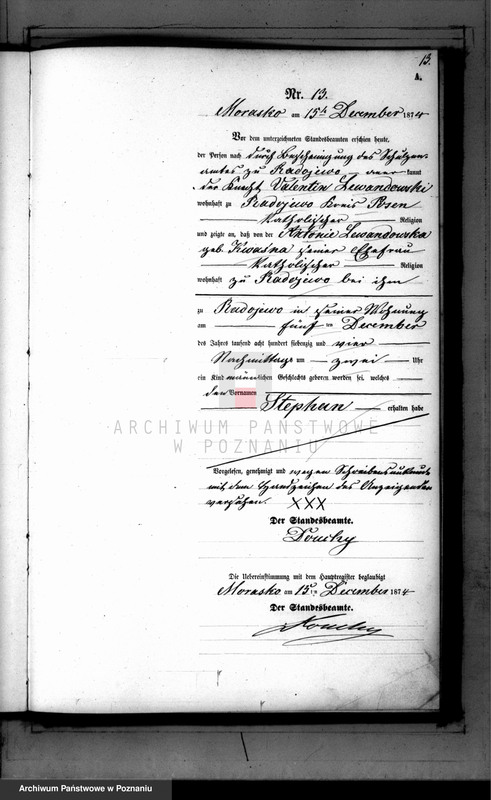 13.
A.
Nr. 13.
Morasko am 15ten December 1874
Vor dem unterzeichneten Standesbeamten erschien heute,
der Person nach durch Bescheinigung des Schulzen-
amtes zu Radojewo — anerkannt
der Knecht Valentin Lewandowski
wohnhaft zu Radojewo Kreis Posen
katholischer Religion
und zeigte an, daß von der Antonie Lewandowska
geb. Kwasna seiner Ehefrau
katholischer Religion
wohnhaft zu Radojewo bei ihm
zu Radojewo in seiner Wohnung
am fünften December
des Jahres tausend acht hundert siebenzig und vier
Nachmittags um zwei Uhr
ein Kind männlichen Geschlechts geboren worden sei, welches
den Vornamen
Stephan erhalten habe
ARCHIWUM PAŃSTWOWE
W POZNANIU
Vorgelesen, genehmigt und wegen Schreibensunkunde
mit dem Handzeichen des Anzeigenden
versehen. XXX
Der Standesbeamte.
Die Uebereinstimmung mit dem Hauptregister beglaubigt
Morasko am 15ten December 1874
Der Standesbeamte.
Archiwum Państwowe w Poznaniu